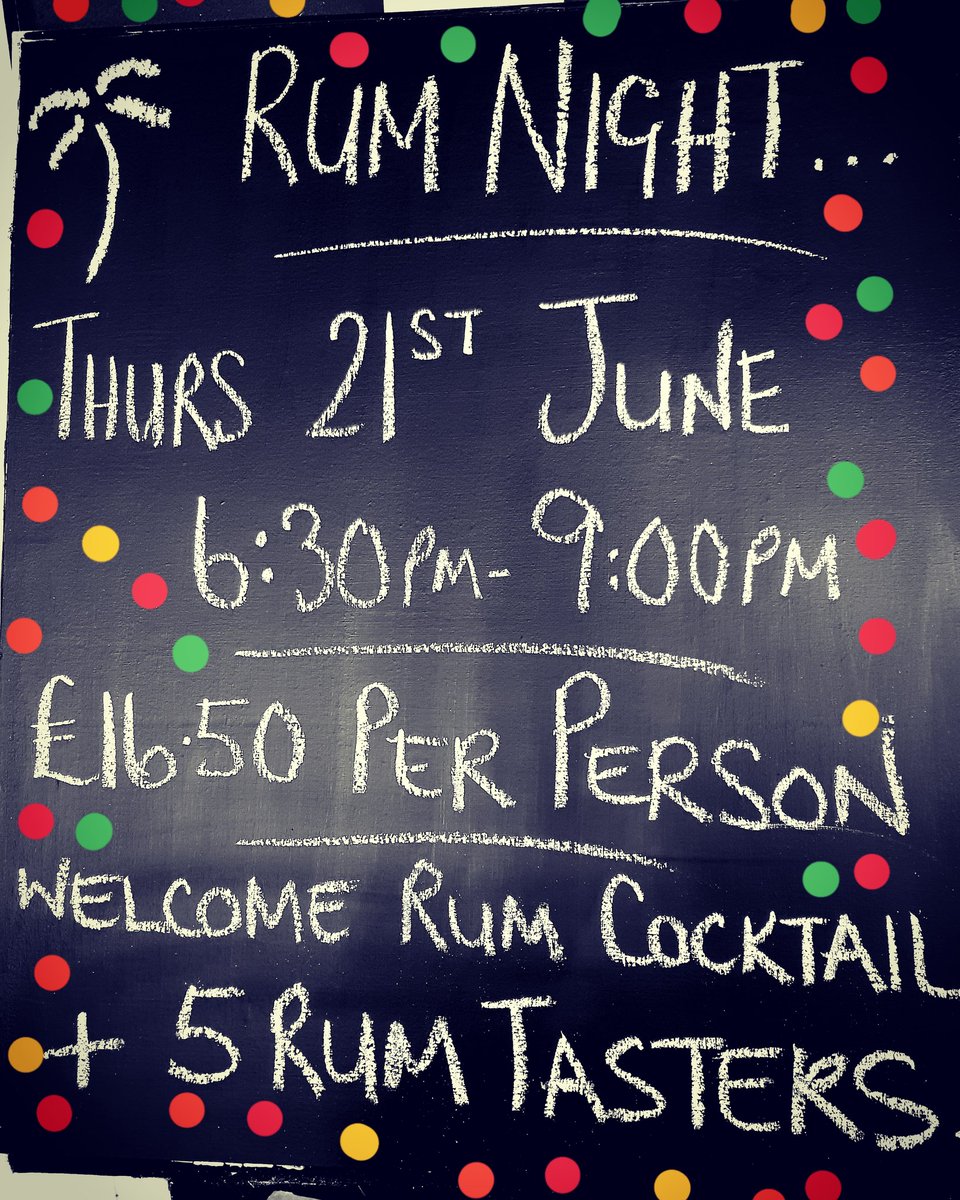 RUM NIGHT...
THURS 21ST JUNE
6:30PM- 9:00PM
£16.50 PER PERSON
WELCOME RUM COCKTAIL
+ 5 RUM TASTERS.